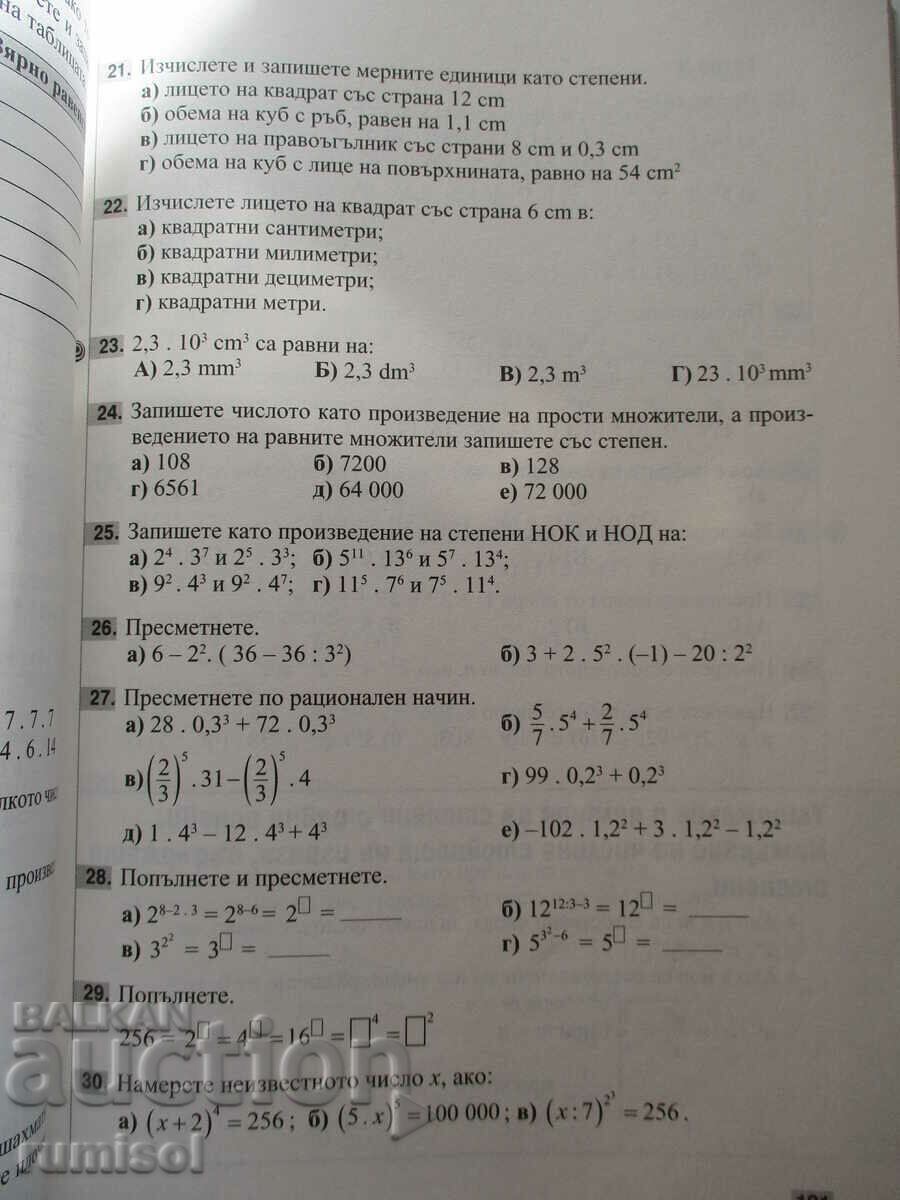 на таблицата
Вярно равенс
7.7.7
4.6.14
произве
шахмат
21. Изчислете и запишете мерните единици като степени.
а) лицето на квадрат със страна 12 cm
б) обема на куб с ръб, равен на 1,1 cm
в) лицето на правоъгълник със страни 8 cm и 0,3 cm
г) обема на куб с лице на повърхнината, равно на 54 cm²
22. Изчислете лицето на квадрат със страна 6 cm в:
а) квадратни сантиметри;
б) квадратни милиметри;
в) квадратни дециметри;
г) квадратни метри.
23. 2,3 . 10³ cm³ са равни на:
А) 2,3 mm³ Б) 2,3 dm³ В) 2,3 m³ Г) 23 . 10³ mm³
24. Запишете числото като произведение на прости множители, а произ-
ведението на равните множители запишете със степен.
а) 108 б) 7200 в) 128
г) 6561 д) 64 000 е) 72 000
25. Запишете като произведение на степени НОК и НОД на:
а) 2⁴ . 3⁷ и 2⁵ . 3³; б) 5¹¹ . 13⁶ и 5⁷ . 13⁴;
в) 9² . 4³ и 9² . 4⁷; г) 11⁵ . 7⁶ и 7⁵ . 11⁴.
26. Пресметнете.
а) 6 – 2². ( 36 – 36 : 3²) б) 3 + 2 . 5² . (–1) – 20 : 2²
27. Пресметнете по рационален начин.
а) 28 . 0,3³ + 72 . 0,3³ б) 5/7 . 5⁴ + 2/7 . 5⁴
в) (2/3)⁵ . 31 – (2/3)⁵ . 4 г) 99 . 0,2³ + 0,2³
д) 1 . 4³ – 12 . 4³ + 4³ е) –102 . 1,2² + 3 . 1,2² – 1,2²
28. Попълнете и пресметнете.
а) 2⁸⁻² ˙ ³ = 2⁸⁻⁶ = 2^□ = _____ б) 12^(12:3–3) = 12^□ = _____
в) 3^(2²) = 3^□ = _____ г) 5^(3²–6) = 5^□ = _____
29. Попълнете.
256 = 2^□ = 4^□ = 16^□ = □⁴ = □²
30. Намерете неизвестното число x, ако:
а) (x + 2)⁴ = 256 ; б) (5 . x)⁵ = 100 000 ; в) (x : 7)^(2³) = 256 .
BALKAN
auction
rumisol